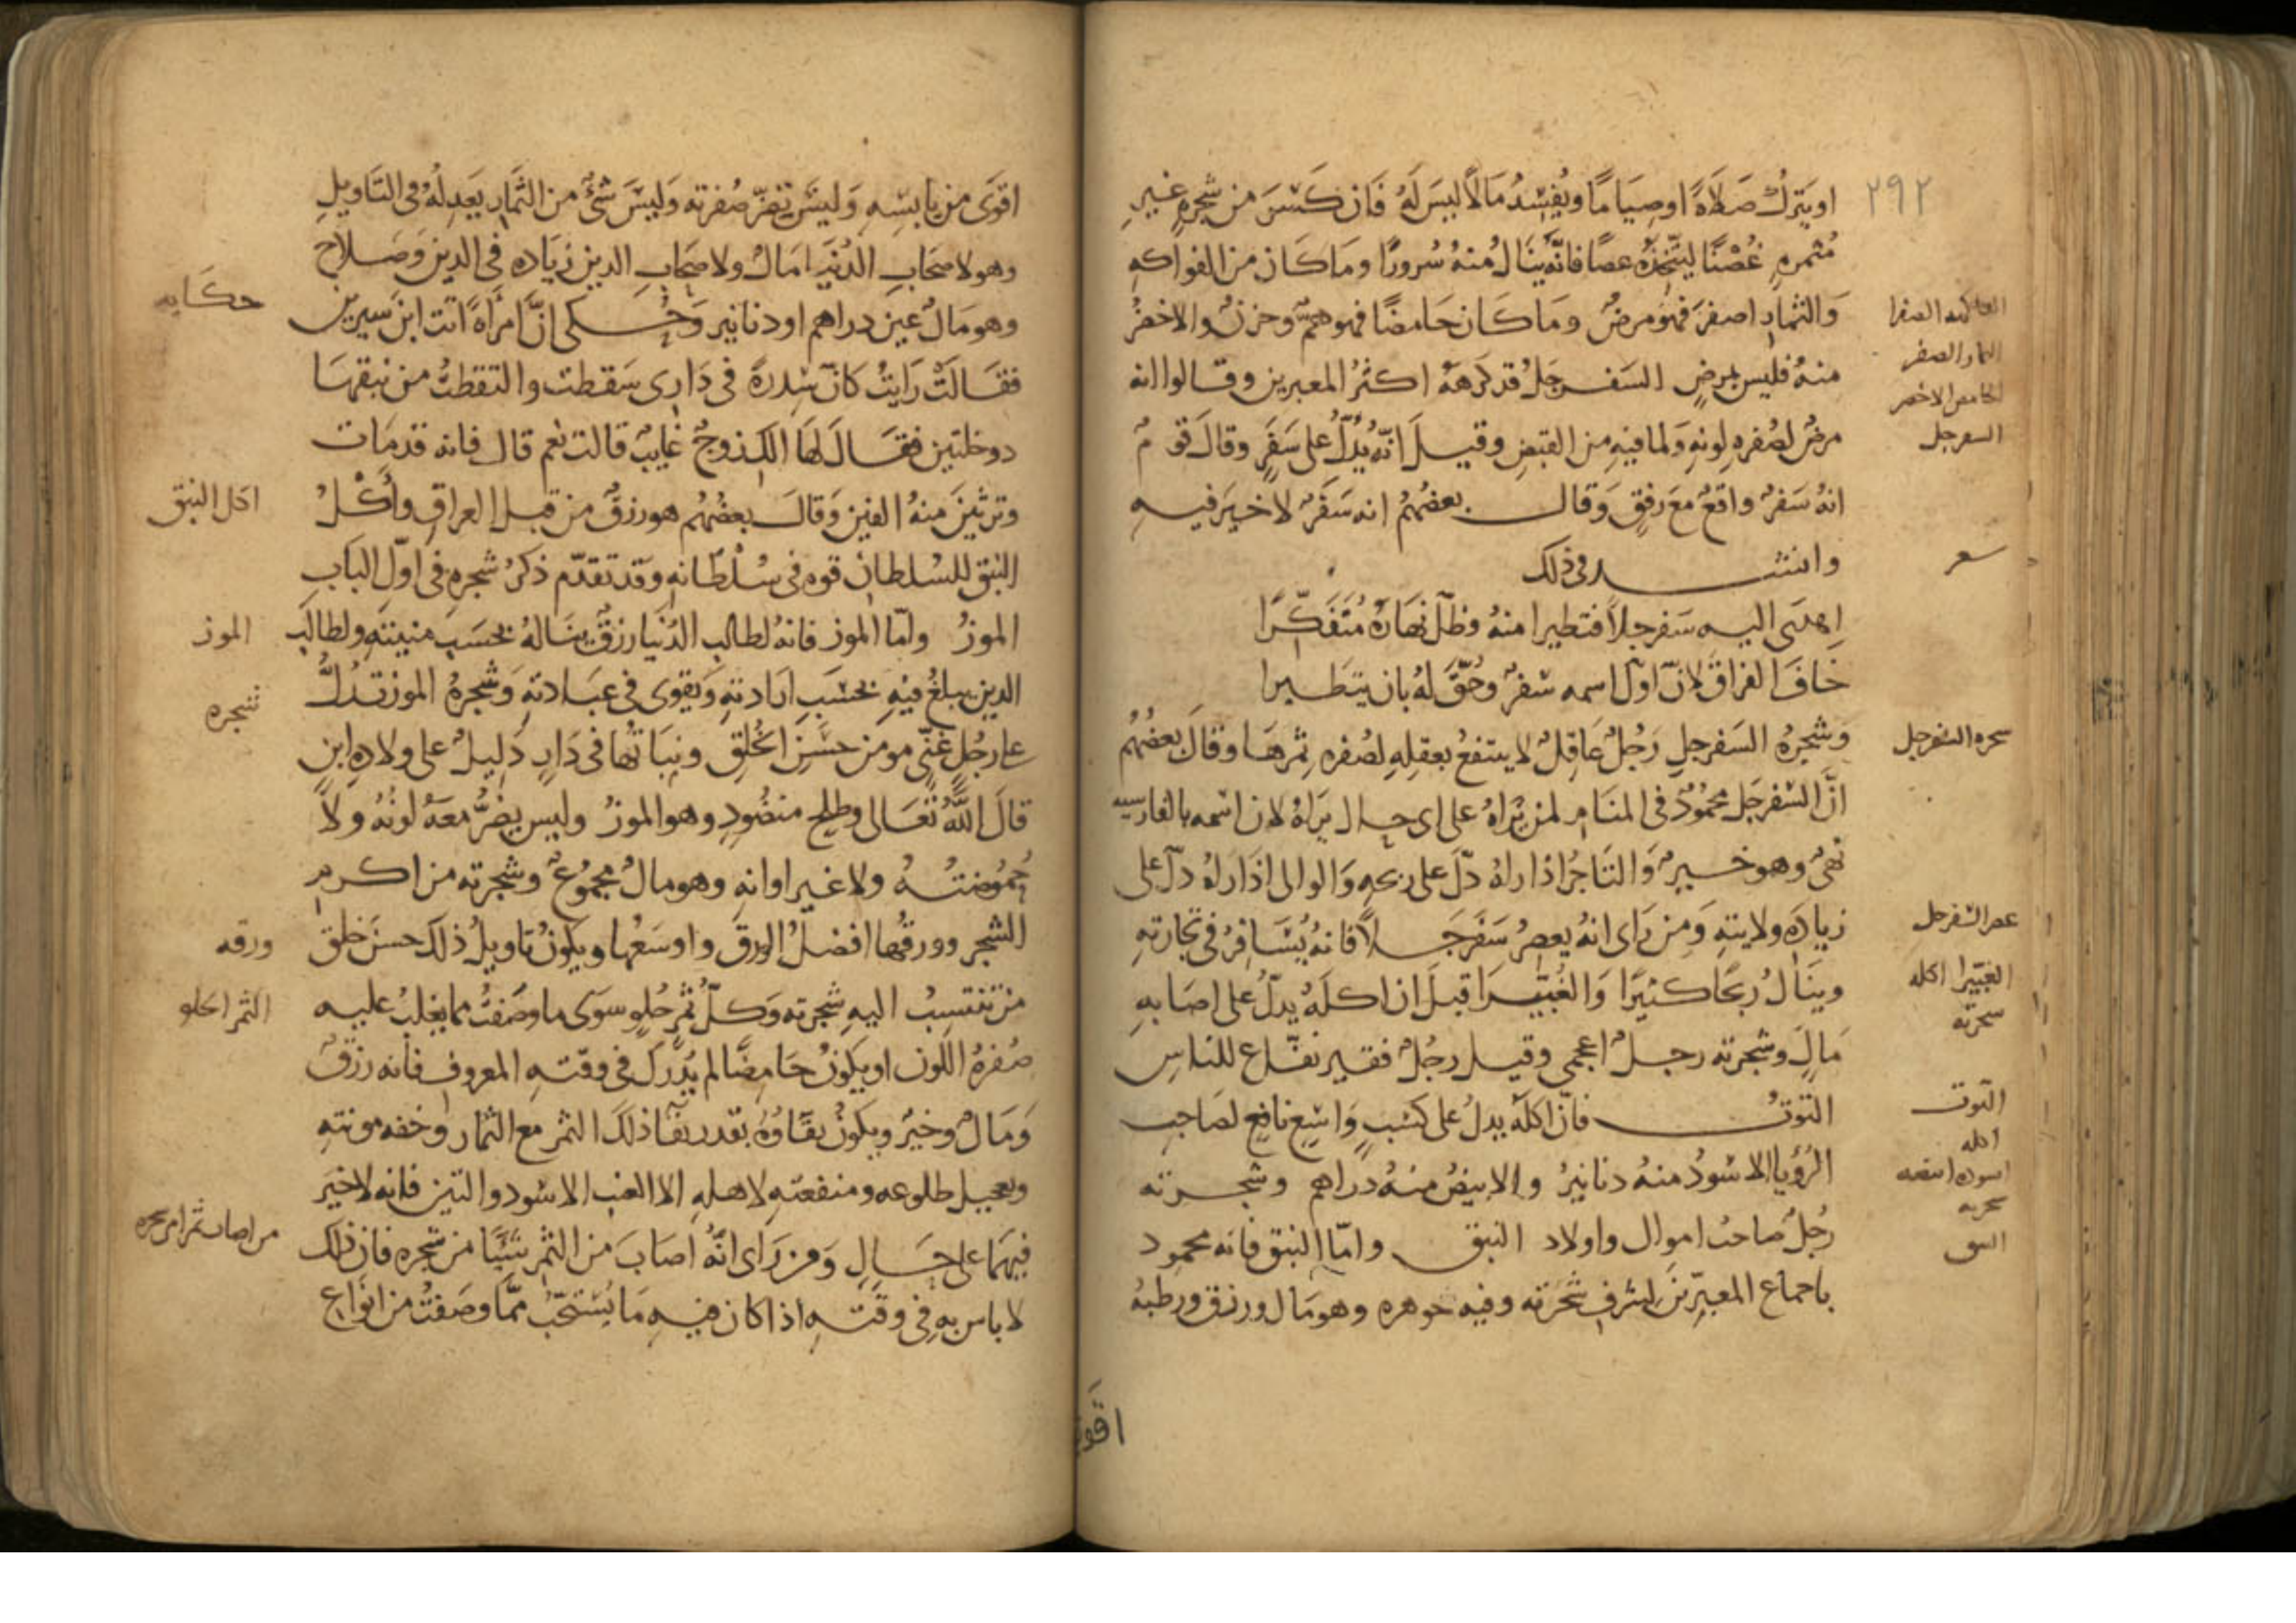 ٢٩٢
او يترك صَلاةً او صِيَامًا ويُفسِدُ مَالاً ليسَ لَهُ فَان كَسَرَ من شجرةٍ غيرِ
مُثمرةٍ غُصْنًا ليتّخذهُ عصًا فانّه ينَالُ منهُ سُرورًا ومَا كَان من الفواكهِ
وَالثمارِ اصفرَ فهوَ مرضٌ ومَا كَان حَامضًا فهو همٌّ وحزنٌ والاخضرُ
منهُ فليس بمرضٍ السَفرجَلُ قد كرَههُ اكثرُ المعبرين وقالوا انه
مرضٌ لصُفره لونهِ ولما فيهِ من القبضِ وقيلَ انّه يُدلُّ على سَفَرٍ وقالَ قومٌ
انهُ سَفرٌ واقعٌ معَ رفقٍ وَقال بعضُهُم انه سَفَرٌ لا خيرَ فيهِ
وانشد في ذلك
اِهدَى اليه سَفرجلاً فتطيرا منهُ وظلّ نهَارَهُ مُتَفَكّرًا
خَافَ الفراقَ لانّ اوّل اسمه سَفرٌ وحُقَّ لهُ بان يتطيرا
وَشجرهُ السَفرجلِ رَجُلٌ عَاقِلٌ لا ينتفعُ بعقلِهِ لصُفره ثمرهَا وقَالَ بعضُهُم
انَّ السَفرجَل محمُودٌ في المنَامِ لمن يرَاهُ على اى حال يَرَاهُ لان اسمه بالفارسيه
بهى وهو خيرٌ وَالتَاجرُ اذا راهُ دَلَّ على ربحهِ وَالوالى اذَا رَاهُ دلّ على
زيادَه ولايتهِ وَمن رَاى انهُ يعصِرُ سَفَرجَلاً فانهُ يُسَافِرُ في تجارتهِ
وينَالُ ربحًا كثيرًا وَالغُبَيرَا قبلَ ان اكلَهُ يدلُّ على اصَابهِ
مَالٍ وشجرته رجلٌ اعجمي وقيل رجُلٌ فقير نفّاع للناسِ
التوتُ فانّ اكلَهُ يدلُ على كسبٍ وَاسِعٍ نافعٍ لصَاحبِ
الرُؤيا الاسودُ منهُ دنانيرُ والابيضُ منهُ دراهم وشجرته
رجُلٌ صاحبُ اموال واولاد النبق وامّا النبق فانه محمود
باجماع المعبّرينَ لشرفِ شجرته وفيه جوهره وهو مَال ورزق ورطبهُ
اقوى
الفاكهه الصفرا
الثمار الصفر
الحامض الاخضر
السفرجل
شعر
شجره السفرجل
عصر السفرجل
الغبيرا اكله
شجرته
التوت
اكله
اسوده ابيضه
شجرته
النبق
اقوَى من يابسِهِ وَليسَ تضرّ صُفرته وَليسَ شئٌ من الثمَارِ يَعدِلُهُ فى التَاويلِ
وهو لاصحَابِ الدُنيَا مَالٌ ولاصحَابِ الدين زيَاده في الدين وَصَلاح
وهو مَالٌ عين دراهم او دنانير وَحُكى انَّ امرَاةً اتت ابن سيرين
فقَالَتْ رَايتُ كانّ سِدرةً في دَارِى سَقطت والتقطتُ من نبقهَا
دوخلتين فقَالَ لهَا الكِ زوجٌ غايبٌ قالت نعم قال فانه قد مَات
وترثينَ منهُ الفين وَقالَ بعضُهُم هو رزقٌ من قبل العراقِ واَكْلُ
النبق للسُلطانِ قوه في سُلْطَانهِ وقد تقدّم ذكرُ شجرهِ في اوّل البَابِ
الموزُ وامّا الموز فانهُ لطالبِ الدُنيَا رزقٌ ينَالهُ بحسَبِ منبته ولطالب
الدين يبلغُ فيهِ بحَسَبِ ارَادتهِ وَيقوى في عبَادتهِ وَشجرهُ الموز تدُلُّ
على رجُلٍ غنّىٍ مومن حسَن الخُلقِ ونبَاتُهَا في دَارٍ دَليلٌ على ولادهِ ابنٍ
قالَ اللَّهُ تَعَالى وطلحٍ منضُودٍ وهو الموزُ وليس يضرُّ معَهُ لونُهُ ولا
حُمُوضتُهُ ولا غير اوانهِ وهو مالٌ مجمُوعٌ وشجرته من اكرم
الشجر وورقُها افضلُ الورق واوسَعُها ويكونُ تاويلُ ذلكَ حسنَ خلق
من تنتسِبُ اليهِ شجرته وَكلُّ ثمرٍ حُلوٍ سوَى ما وصَفتُ مما يغلبُ عليه
صُفرهُ اللون او يكونُ حَامِضًا لم يُدرَك في وقتهِ المعروف فانه رزقٌ
وَمَالٌ وخيرٌ ويكونُ بقَاوُهُ بقدر بقَا ذلكَ الثمر مع الثمار وخفه مونتهِ
وتعجيل طلوعه ومنفعتهِ لاهلهِ الا العنب الاسود والتين فانه لا خيرَ
فيهمَا على حَالٍ وَمن رَاى انَّهُ اصَابَ من الثمرِ شَيًا من شجره فان ذلك
لا باس به في وقتهِ اذا كان فيهِ مَا يُستحَبّ ممَّا وصَفتُ من انوَاع
حكَايه
اكل النبق
الموز
شجره
ورقه
الثمر الحلو
من اصاب ثمرا من شجره